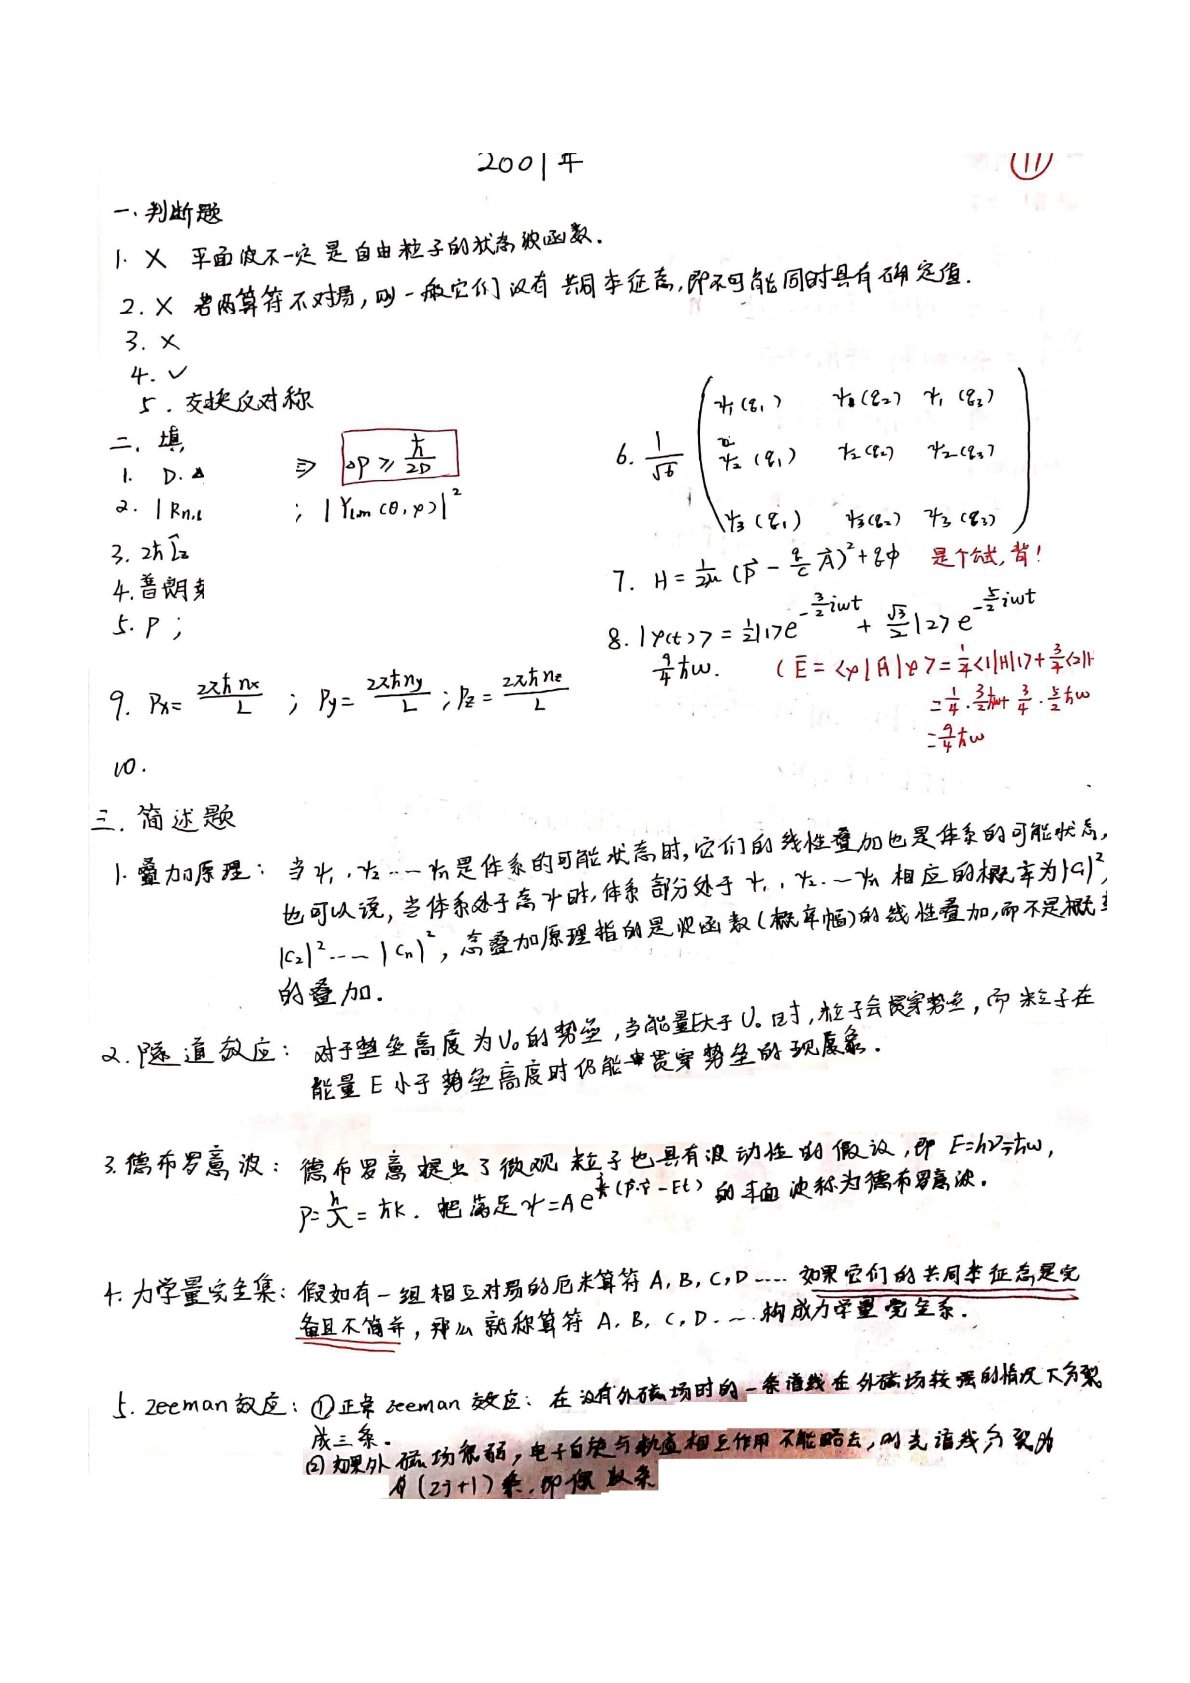 2001年
⑪
一. 判断题
1. × 平面波不一定是自由粒子的状态波函数.
2. × 若两算符不对易, 则一般它们没有共同本征态, 即不可能同时具有确定值.
3. ×
4. ✓
5. 交换反对称
二. 填
1. D.Δ ⇒ ΔP ≥ ħ/2D
2. |Rn,l ; |Ylm(θ,φ)|²
3. 2ħ L̂z
4. 普朗
5. P ;
6. 1/√6 ( ψ1(q1) ψ1(q2) ψ1(q3)
ψ2(q1) ψ2(q2) ψ2(q3)
ψ3(q1) ψ3(q2) ψ3(q3) )
7. H = 1/2μ (P⃗ - q/c A⃗)² + qϕ 是个公式, 背!
8. |ψ(t)> = 1/2|1>e^{-3/2 iωt} + √3/2|2>e^{-5/2 iωt}
9/4 ħω. (Ē = <ψ|Ĥ|ψ> = 1/4<1|H|1> + 3/4<2|H
= 1/4·3/2ħω + 3/4·5/2ħω
= 9/4ħω
9. Px = 2πħnx/L ; Py = 2πħny/L ; Pz = 2πħnz/L
10.
三. 简述题
1. 叠加原理: 当ψ1, ψ2 … ψn是体系的可能状态时, 它们的线性叠加也是体系的可能状态,
也可以说, 当体系处于态ψ时, 体系部分处于ψ1, ψ2 … ψn 相应的概率为|C1|²,
|C2|² … |Cn|², 态叠加原理指的是波函数(概率幅)的线性叠加, 而不是概率
的叠加.
2. 隧道效应: 对于势垒高度为U0的势垒, 当能量E大于U0时, 粒子会贯穿势垒, 而粒子在
能量E小于势垒高度时仍能贯穿势垒的现象.
3. 德布罗意波: 德布罗意提出了微观粒子也具有波动性的假设, 即 E=hν=ħω,
P=h/λ=ħk. 把满足ψ=Ae^{i/ħ(P⃗·r⃗-Et)}的平面波称为德布罗意波.
4. 力学量完全集: 假如有一组相互对易的厄米算符A, B, C, D …. 如果它们的共同本征态是完
备且不简并, 那么就称算符 A, B, C, D … 构成力学量完全系.
5. Zeeman效应: ①正常zeeman效应: 在没有外磁场时的一条谱线在外磁场较强的情况下分裂
成三条.
②如果外磁场很弱, 电子自旋与轨道相互作用不能略去, 则光谱线分裂为
(2j+1)条. 即偶数条